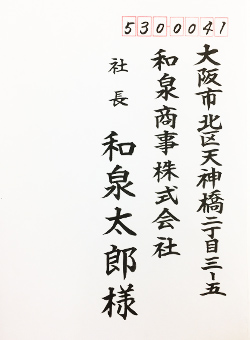 530-0041
大阪市北区天神橋二丁目三-五
和泉商事株式会社
社長
和泉太郎様